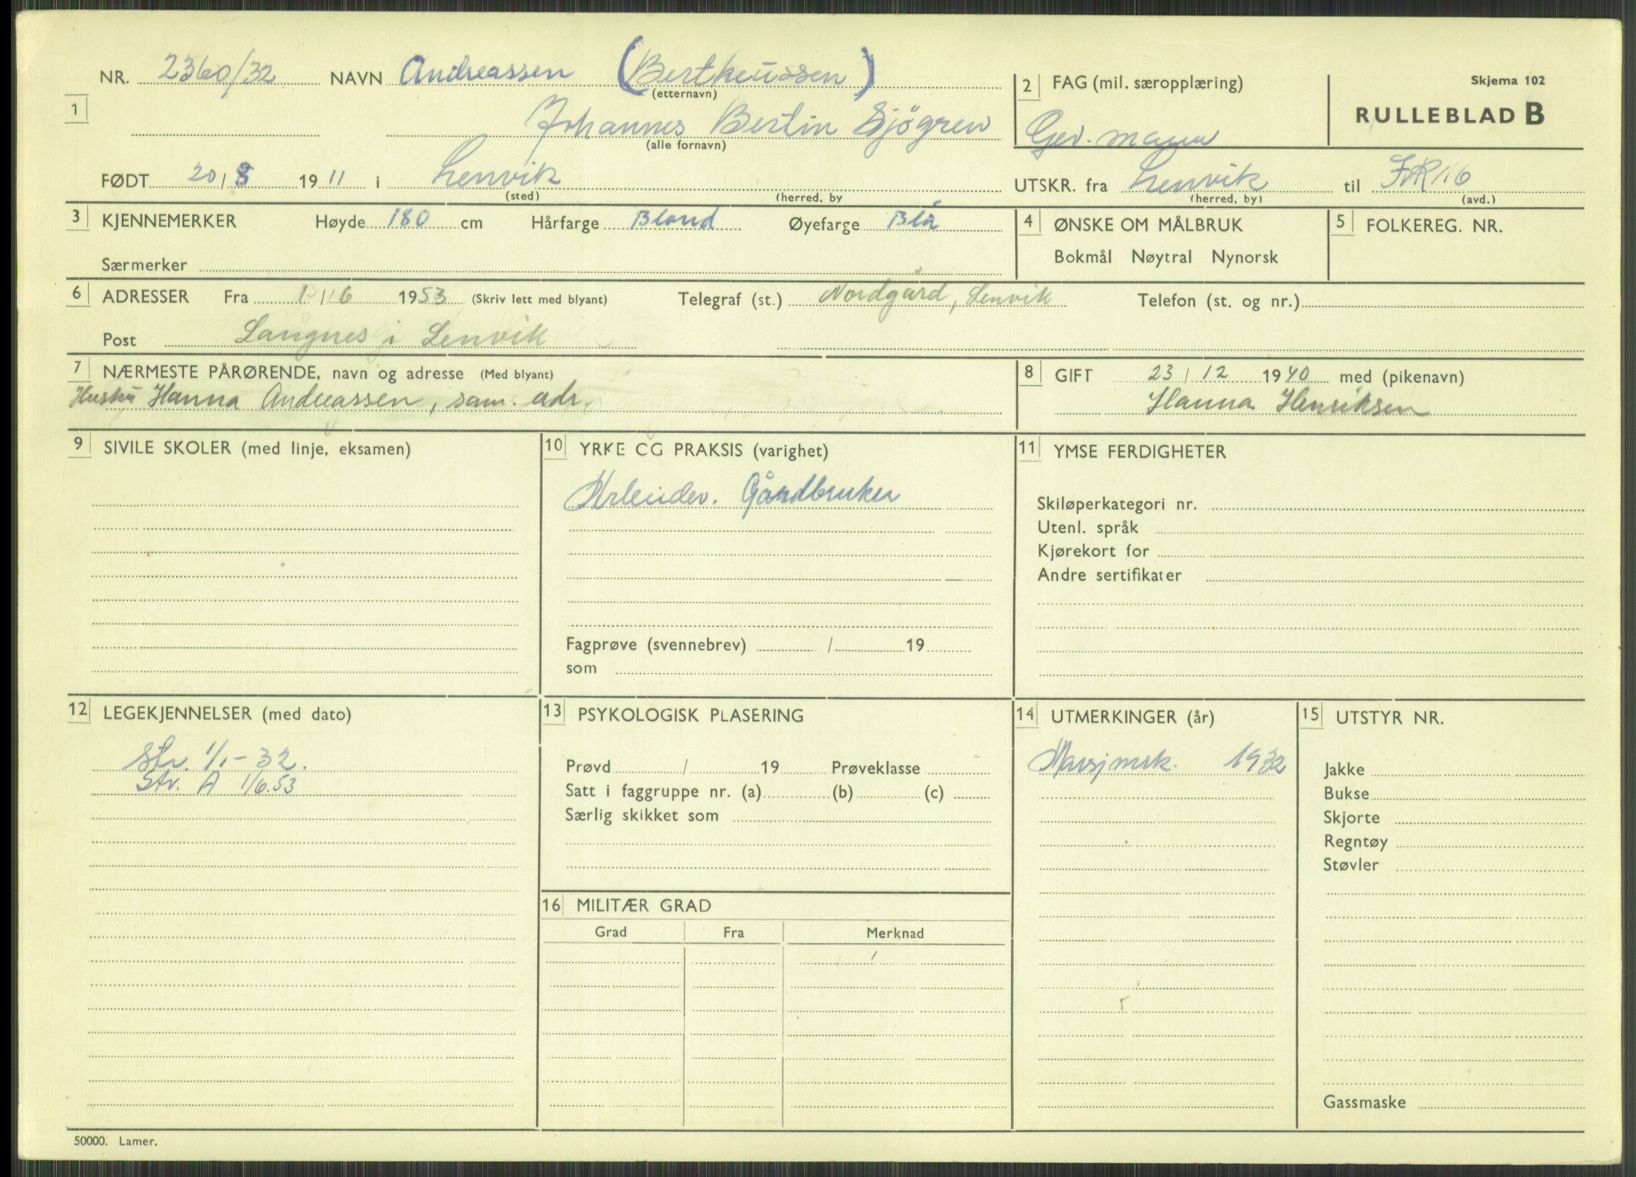 Skjema 102
RULLEBLAD B
1 NR. 2360/32 NAVN Andreassen (Bertheussen)
(etternavn)
Johannes Bertin Sjögren
(alle fornavn)
FØDT 20/8 1911 i Lenvik
(sted) (herred, by
2 FAG (mil. særopplæring)
Gev. mann
UTSKR. fra Lenvik til IR 16
(herred, by) (avd.)
3 KJENNEMERKER Høyde 180 cm Hårfarge Blond Øyefarge Blå
Særmerker
4 ØNSKE OM MÅLBRUK
Bokmål Nøytral Nynorsk
5 FOLKEREG. NR.
6 ADRESSER Fra 1/6 1953 (Skriv lett med blyant) Telegraf (st.) Nordgård, Lenvik Telefon (st. og nr.)
Post Langnes i Lenvik
7 NÆRMESTE PÅRØRENDE, navn og adresse (Med blyant)
Hustru Hanna Andreassen, sam. adr.
8 GIFT 23/12 1940 med (pikenavn)
Hanna Henriksen
9 SIVILE SKOLER (med linje, eksamen)
10 YRKE OG PRAKSIS (varighet)
Arbeider. Gårdbruker
Fagprøve (svennebrev) / 19
som
11 YMSE FERDIGHETER
Skiløperkategori nr.
Utenl. språk
Kjørekort for
Andre sertifikater
12 LEGEKJENNELSER (med dato)
Str. 1/1-32.
Str. A 1/6.53
13 PSYKOLOGISK PLASERING
Prøvd / 19 Prøveklasse
Satt i faggruppe nr. (a) (b) (c)
Særlig skikket som
14 UTMERKINGER (år)
Marsjmrk. 1932
15 UTSTYR NR.
Jakke
Bukse
Skjorte
Regntøy
Støvler
Gassmaske
16 MILITÆR GRAD
Grad Fra Merknad
50000. Lamer.